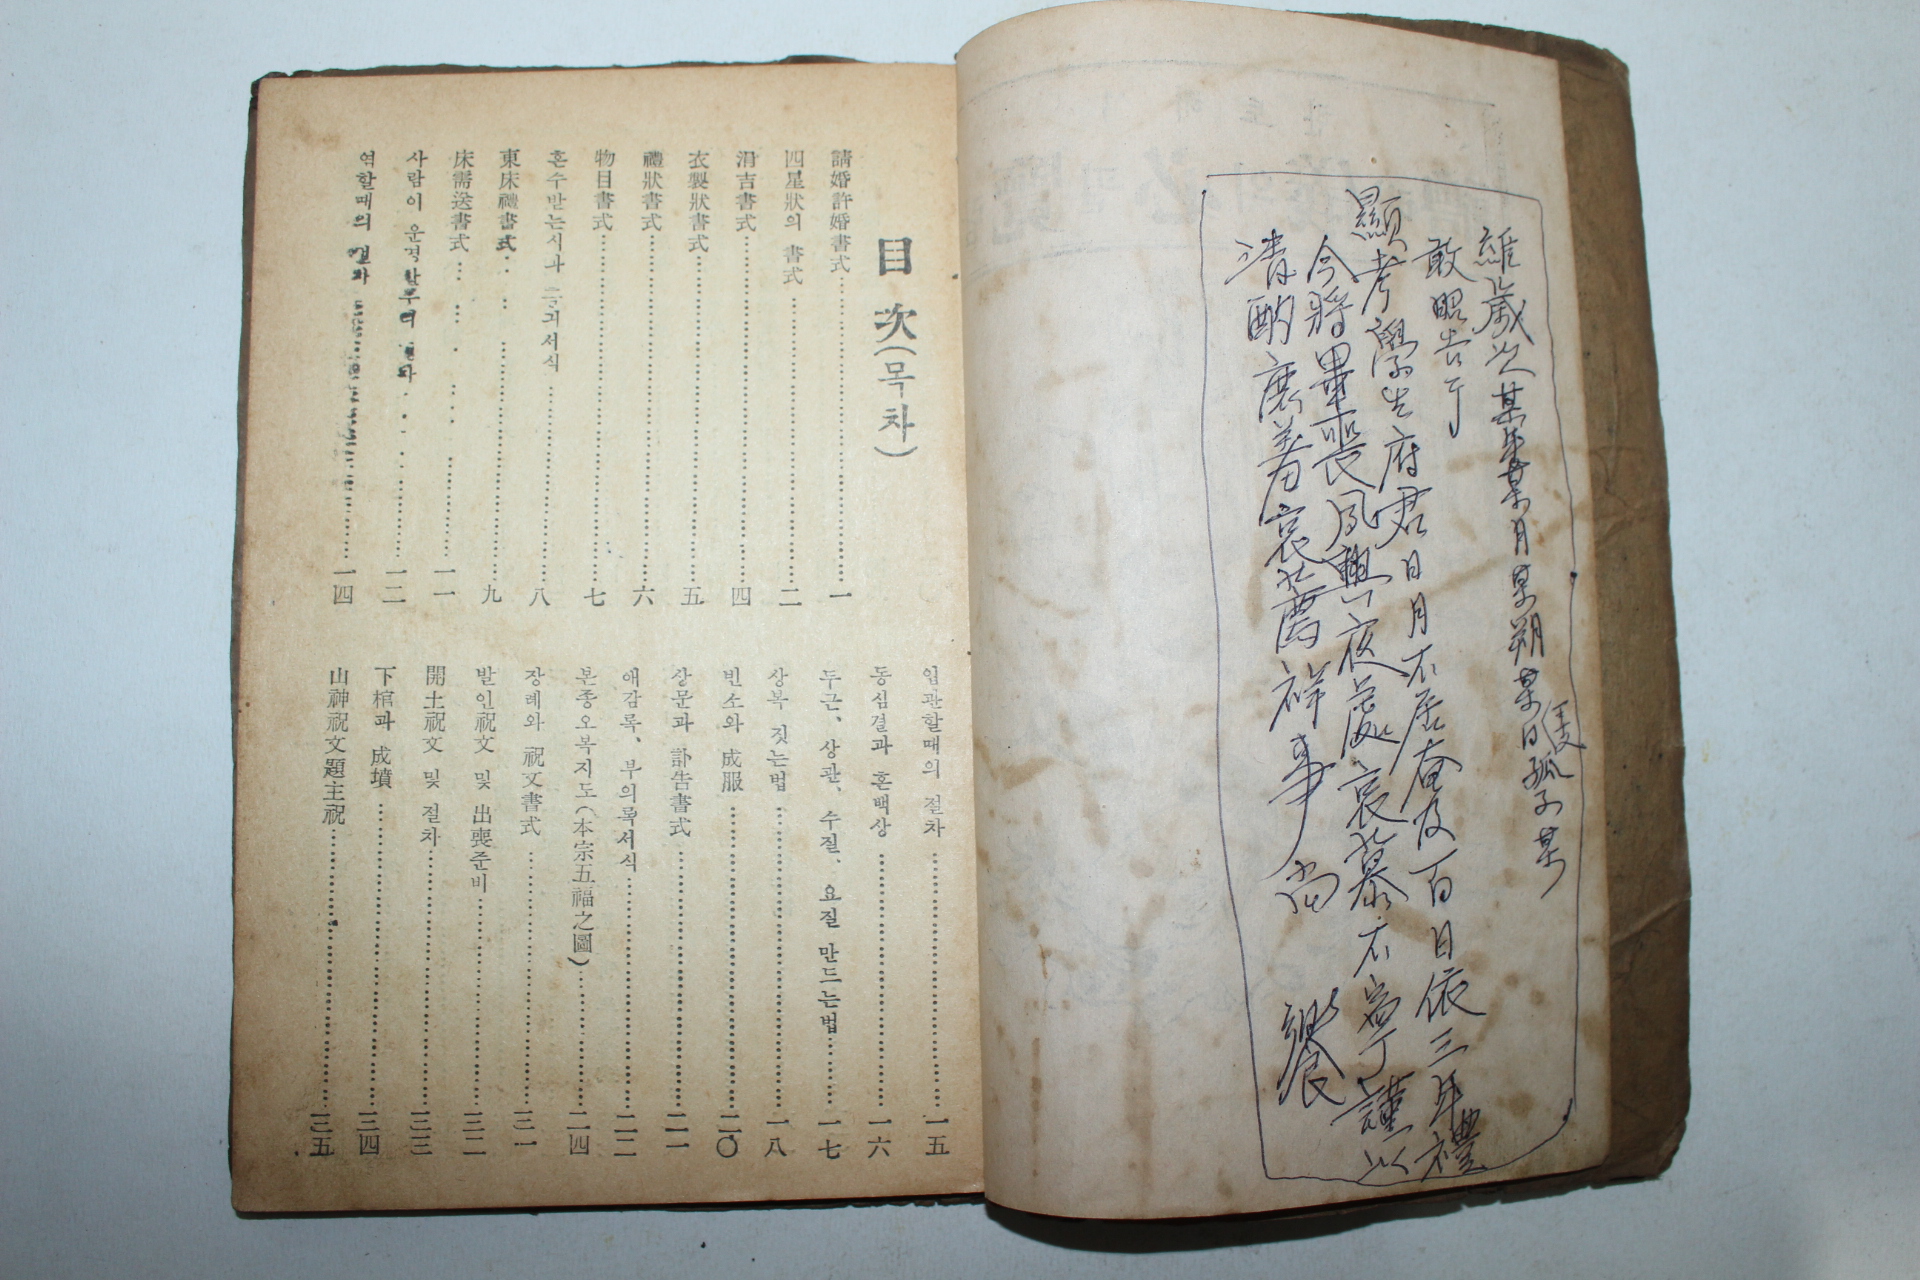 維歲次某年某月某朔某日干支孤子某
敢昭告于
顯考學生府君日月不居奄及百日依三年禮
今將畢喪夙興夜處哀慕不寧謹以
淸酌庶羞哀薦祥事 尙 饗
目次(목차)
請婚許婚書式 一
四星狀의 書式 二
涓吉書式 四
衣製狀書式 五
禮狀書式 六
物目書式 七
혼수받는식과 서식 八
東床禮書式 九
床需送書式 一一
사람이 운명할 一二
염할때의 절차 一四
입관할때의 절차 一五
동심결과 혼백상 一六
두근、상관、수질、요질 만드는법 一七
상복 짓는법 一八
빈소와 成服 二〇
상문과 訃告書式 二一
애감록、부의록서식 二二
본종오복지도(本宗五福之圖) 二四
장례와 祝文書式 三一
발인祝文 및 出喪준비 三二
開土祝文 및 절차 三三
下棺과 成墳 三四
山神祝文題主祝 三五